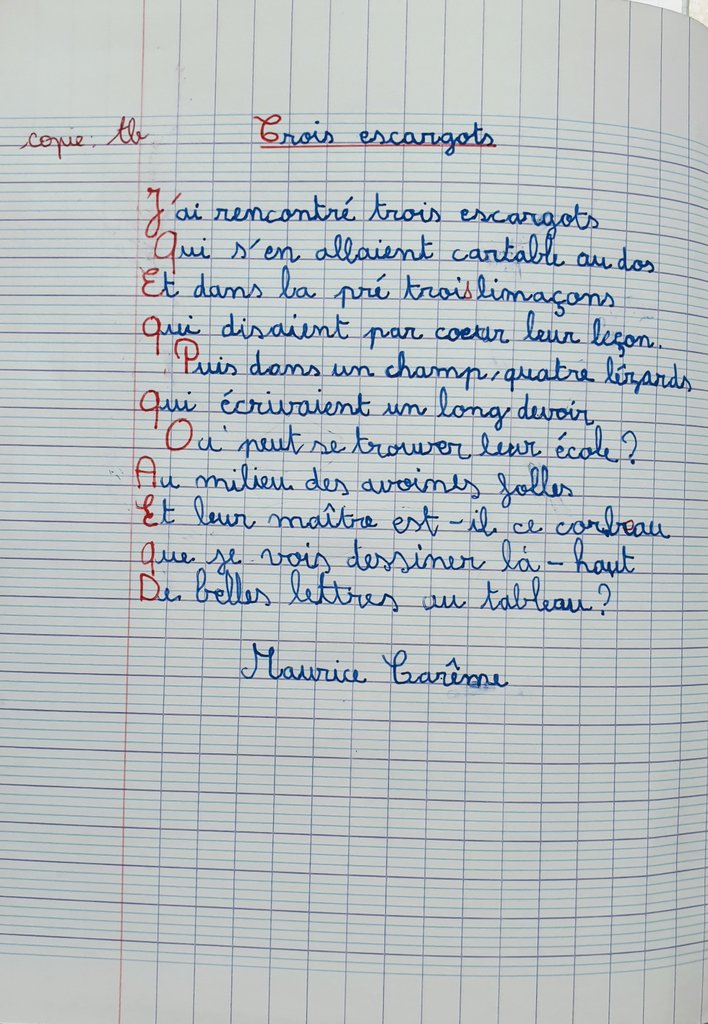 copie: tb Trois escargots
J'ai rencontré trois escargots
Qui s'en allaient cartable au dos
Et dans la pré trois limaçons
qui disaient par coeur leur leçon.
Puis dans un champ, quatre lézards
qui écrivaient un long devoir
Où peut se trouver leur école?
Au milieu des avoines folles
Et leur maître est-il ce corbeau
que je vois dessiner là-haut
De belles lettres au tableau?
Maurice Carême